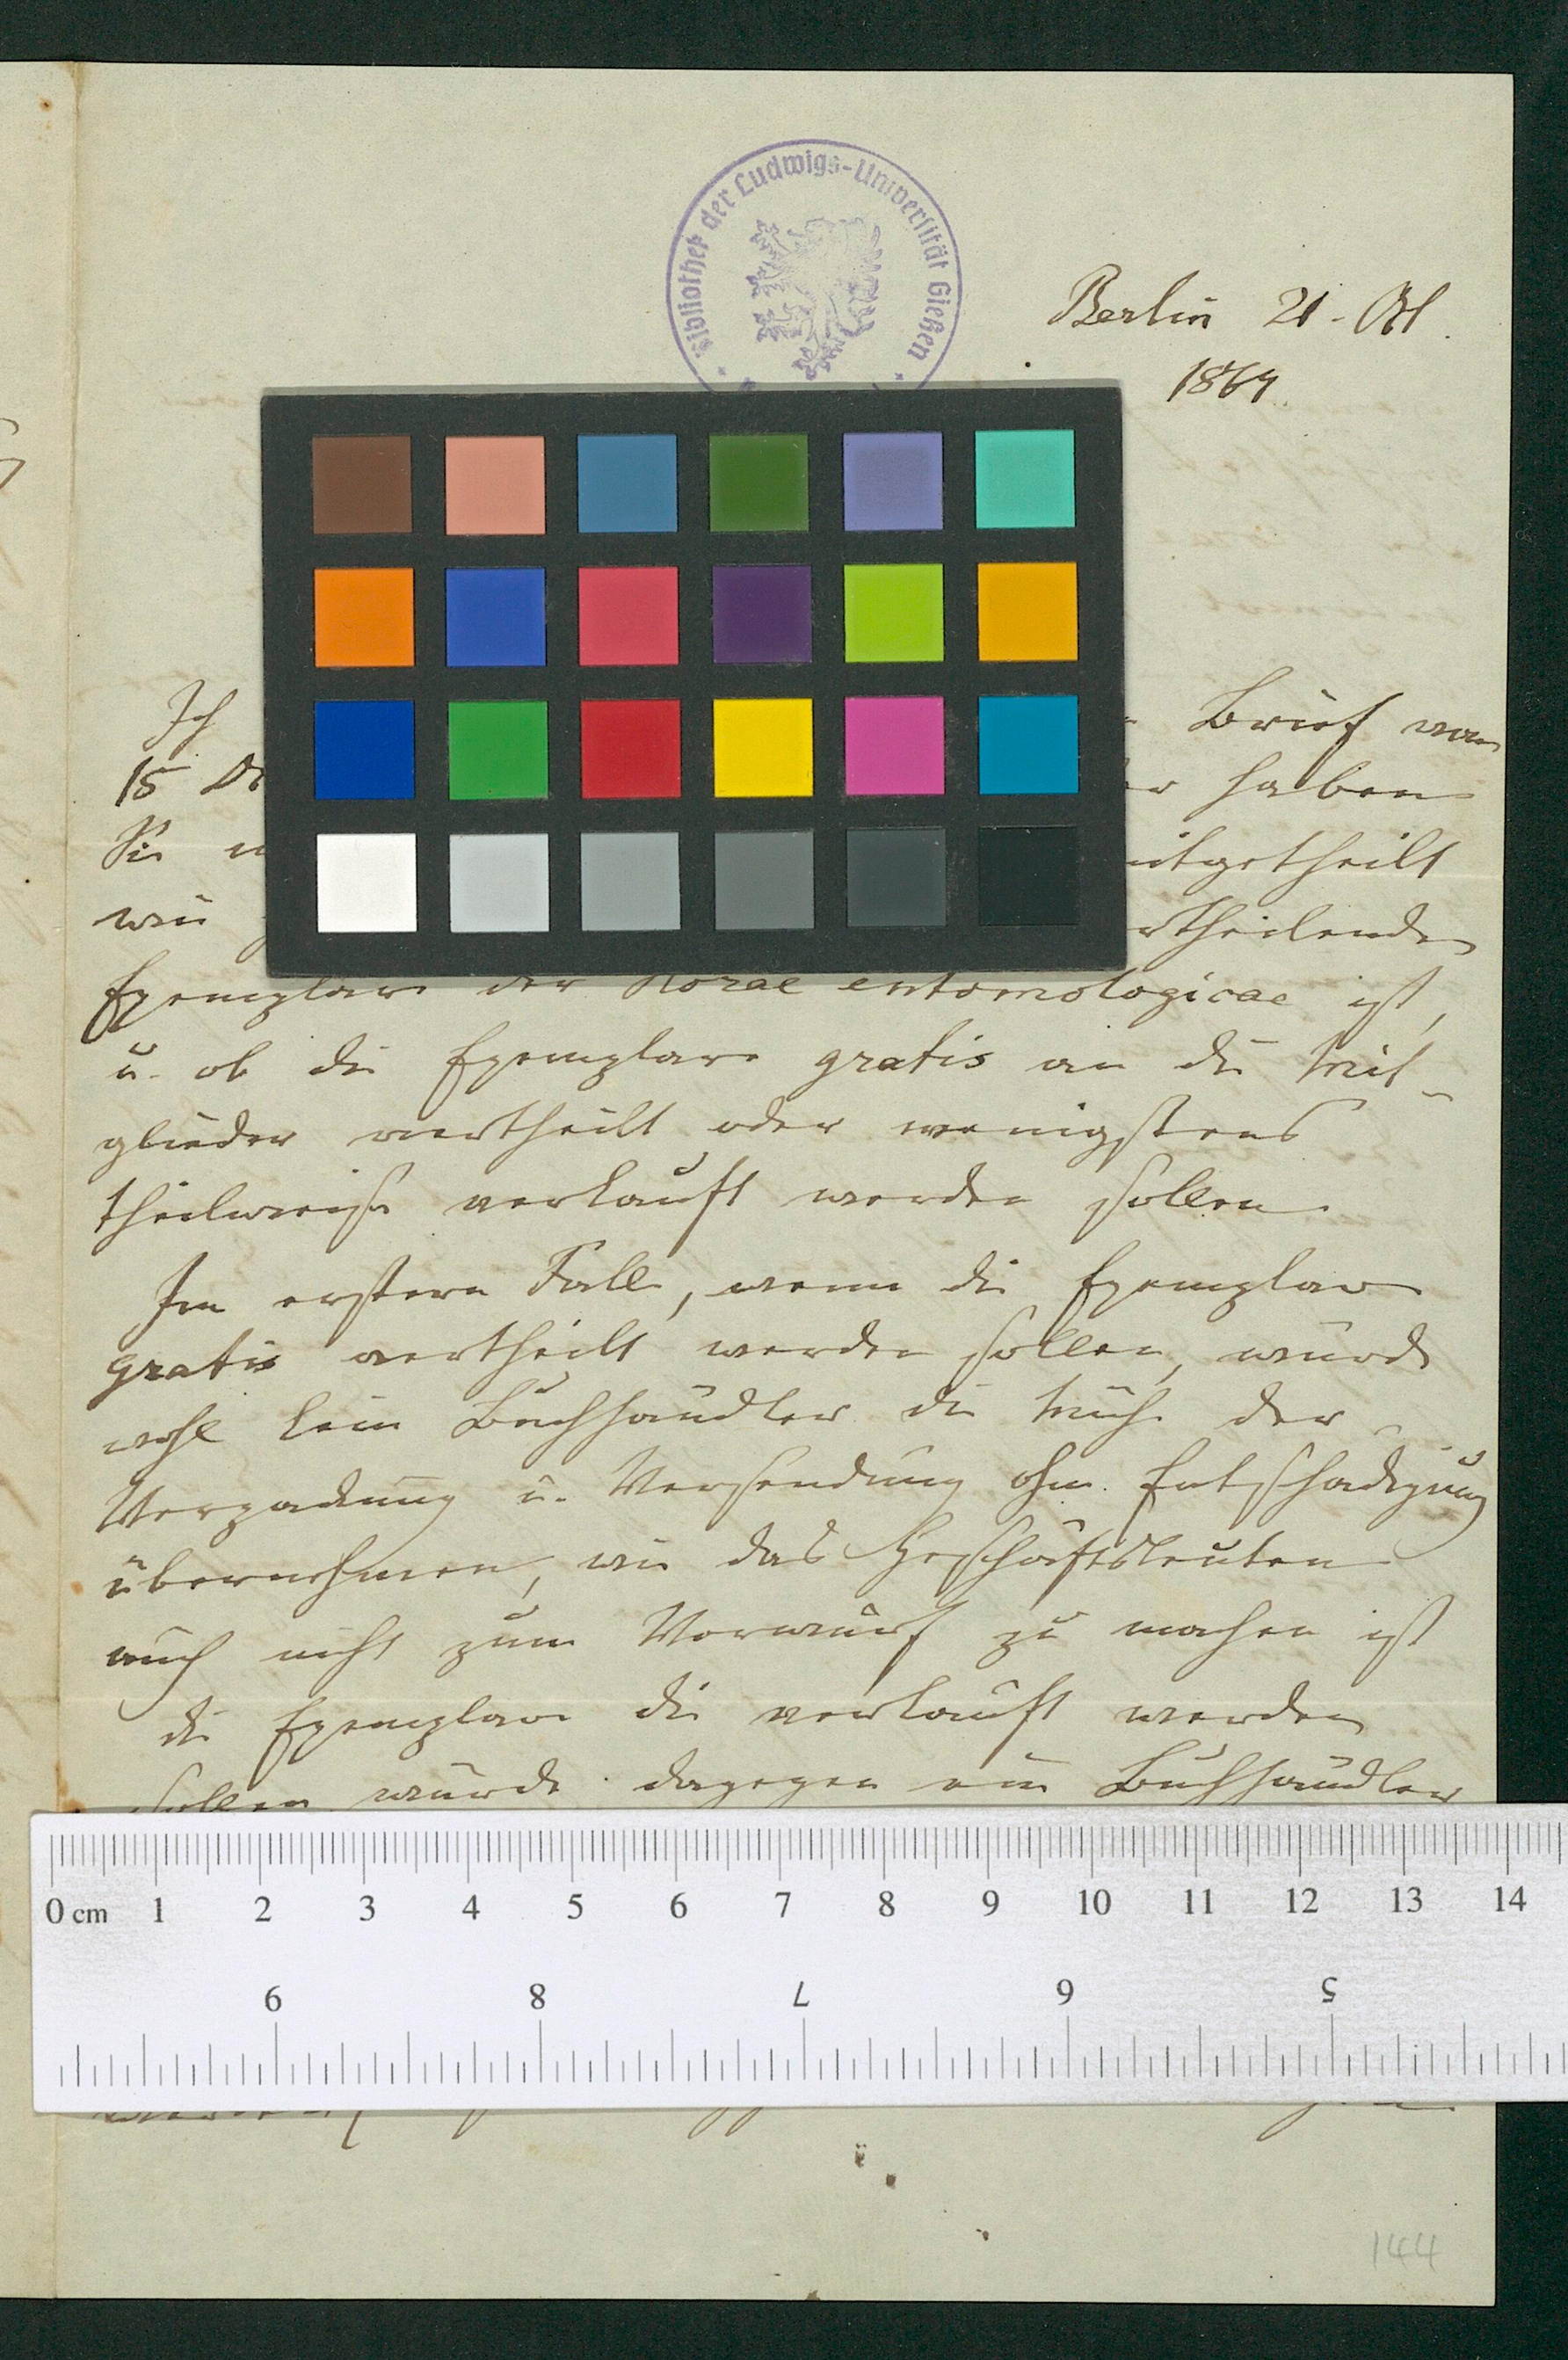 Bibliothek der Ludwigs-Universität Gießen
Berlin 21. Okt.
1864.
Ich Brief vom
15
haben
Sie mitgetheilt
wie
Exemplare der Horae entomologicae ist,
u. ob die Exemplare gratis an die Mit-
glieder vertheilt oder wenigstens
theilweise verkauft werden sollen
Im erstern Fall, wenn die Exemplare
gratis vertheilt werden sollen, würde
wohl kein Buchhändler die Mühe der
Verpackung u. Versendung ohne Entschädigung
übernehmen, wie das Geschäftsleuten
auch nicht zum Vorwurf zu machen ist
die Exemplare die verkauft werden
sollen würde dagegen ein Buchhändler
0 cm 1 2 3 4 5 6 7 8 9 10 11 12 13 14
9 8 7 6 5
144